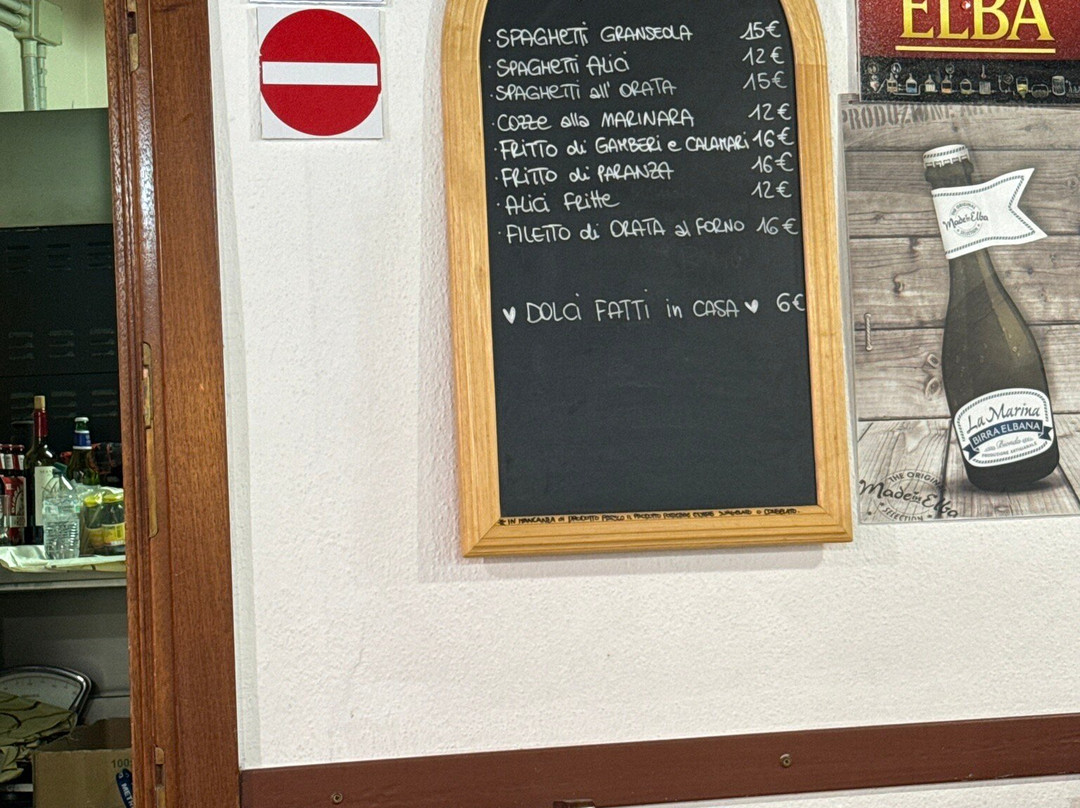 · SPAGHETTI GRANSEOLA 15€
· SPAGHETTI ALICI 12€
· SPAGHETTI all' ORATA 15€
· COZZE alla MARINARA 12€
· FRITTO di GAMBERI e CALAMARI 16€
· FRITTO di PARANZA 16€
· ALICI FRITTE 12€
· FILETTO di ORATA al FORNO 16€
♥ DOLCI FATTI in CASA ♥ 6€
* IN MANCANZA DI PRODOTTO FRESCO IL PRODOTTO
ELBA
PRODUZIONE
THE ORIGINAL
Made in Elba
SELECTION
La Marina
BIRRA ELBANA
Bionda
PRODUZIONE ARTIGIANALE
THE ORIGINAL
Made in Elba
SELECTION
100